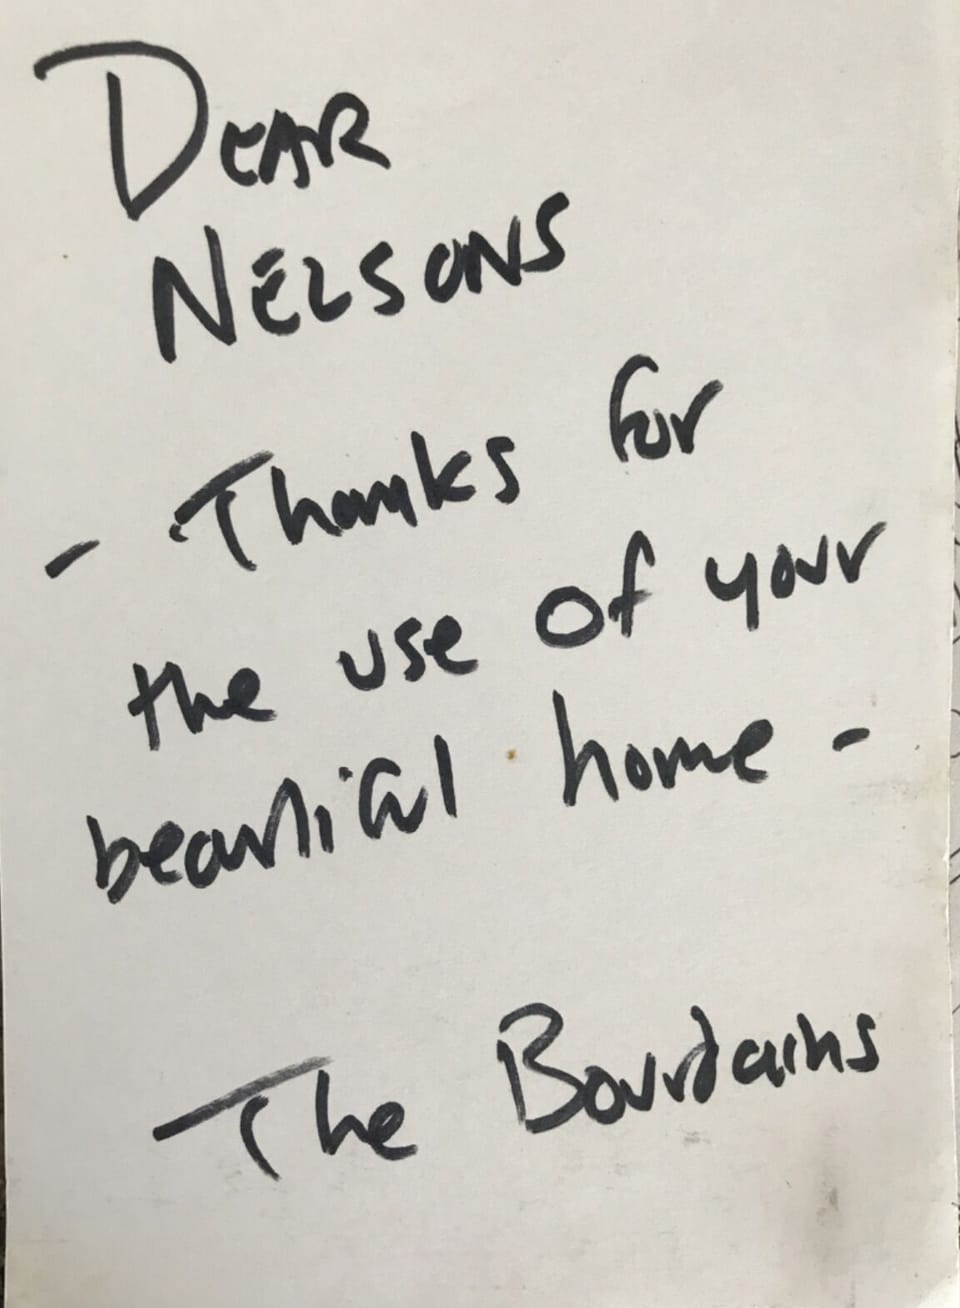 DEAR
NELSONS
- Thanks for
the use of your
beautiful home -
The Bourdains